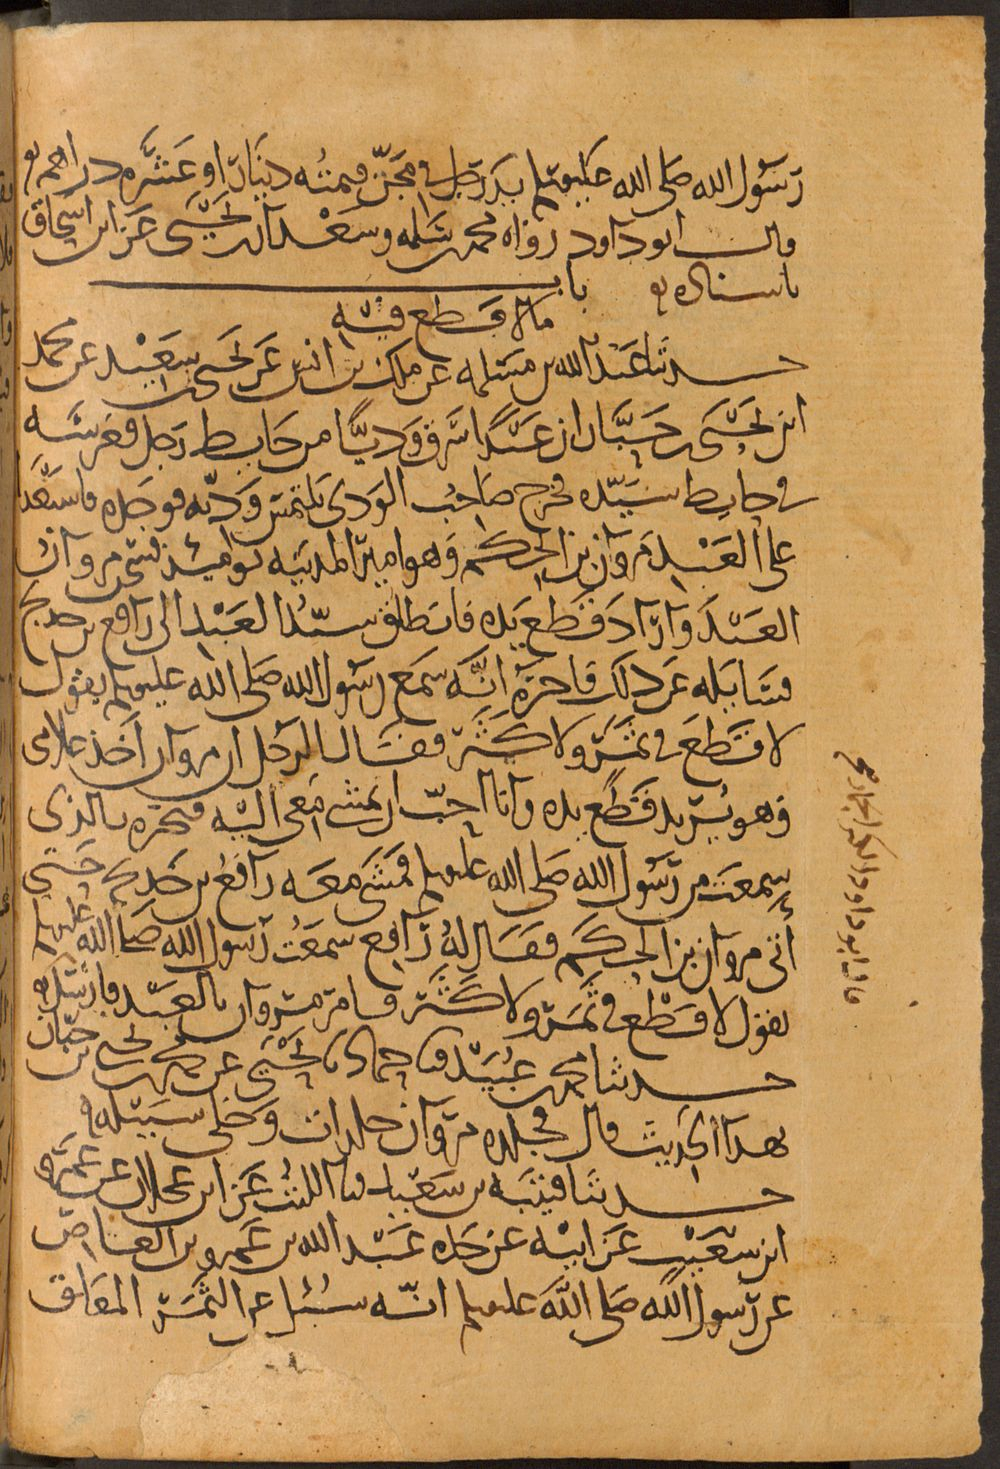 رسول الله صلى الله عليه وسلم يد رجل في مجن قيمته دينار او عشره دراهم
قال ابو داود رواه محمد بن سلمه وسعدان بن يحيى عن ابن اسحاق
باسناده باب
ما لا قطع فيه
حدثنا عبد الله بن مسلمه عن ملك بن انس عن يحيى بن سعيد عن محمد
ابن يحيى بن حبان ان عبدا سرق وديا من حايط رجل فغرسه
في حايط سيده فخرج صاحب الودي يلتمس وديه فوجده فاستعدا
على العبد مروان بن الحكم وهو امير المدينه يوميذ فسجن مروان
العبد واراد قطع يده فانطلق سيد العبد الى رافع بن خديج
فسايله عن ذلك فاخبره انه سمع رسول الله صلى الله عليه وسلم يقول
لا قطع في ثمر ولا كثر فقال الرجل ان مروان اخذ غلامي
وهو يريد قطع يده وانا احب ان تمشي معي اليه فتخبره بالذي
سمعت من رسول الله صلى الله عليه وسلم فمشى معه رافع بن خديج حتى
اتى مروان بن الحكم فقال له رافع سمعت رسول الله صلى الله عليه وسلم
يقول لا قطع في ثمر ولا كثر فامر مروان بالعبد فارسل
حدثنا محمد بن عبيد نا حماد نا يحيى عن محمد بن يحيى بن حبان
بهذا الحديث قال فجلده مروان جلدات وخلى سبيله
حدثنا قتيبه بن سعيد نا الليث عن ابن عجلان عن عمرو
ابن شعيب عن ابيه عن جده عبد الله بن عمرو بن العاص
عن رسول الله صلى الله عليه وسلم انه سئل عن الثمر المعلق
قال ابو داود الكثر الجمار